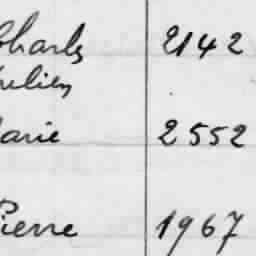 Charles 2142
Julien
Marie 2552
Pierre 1967